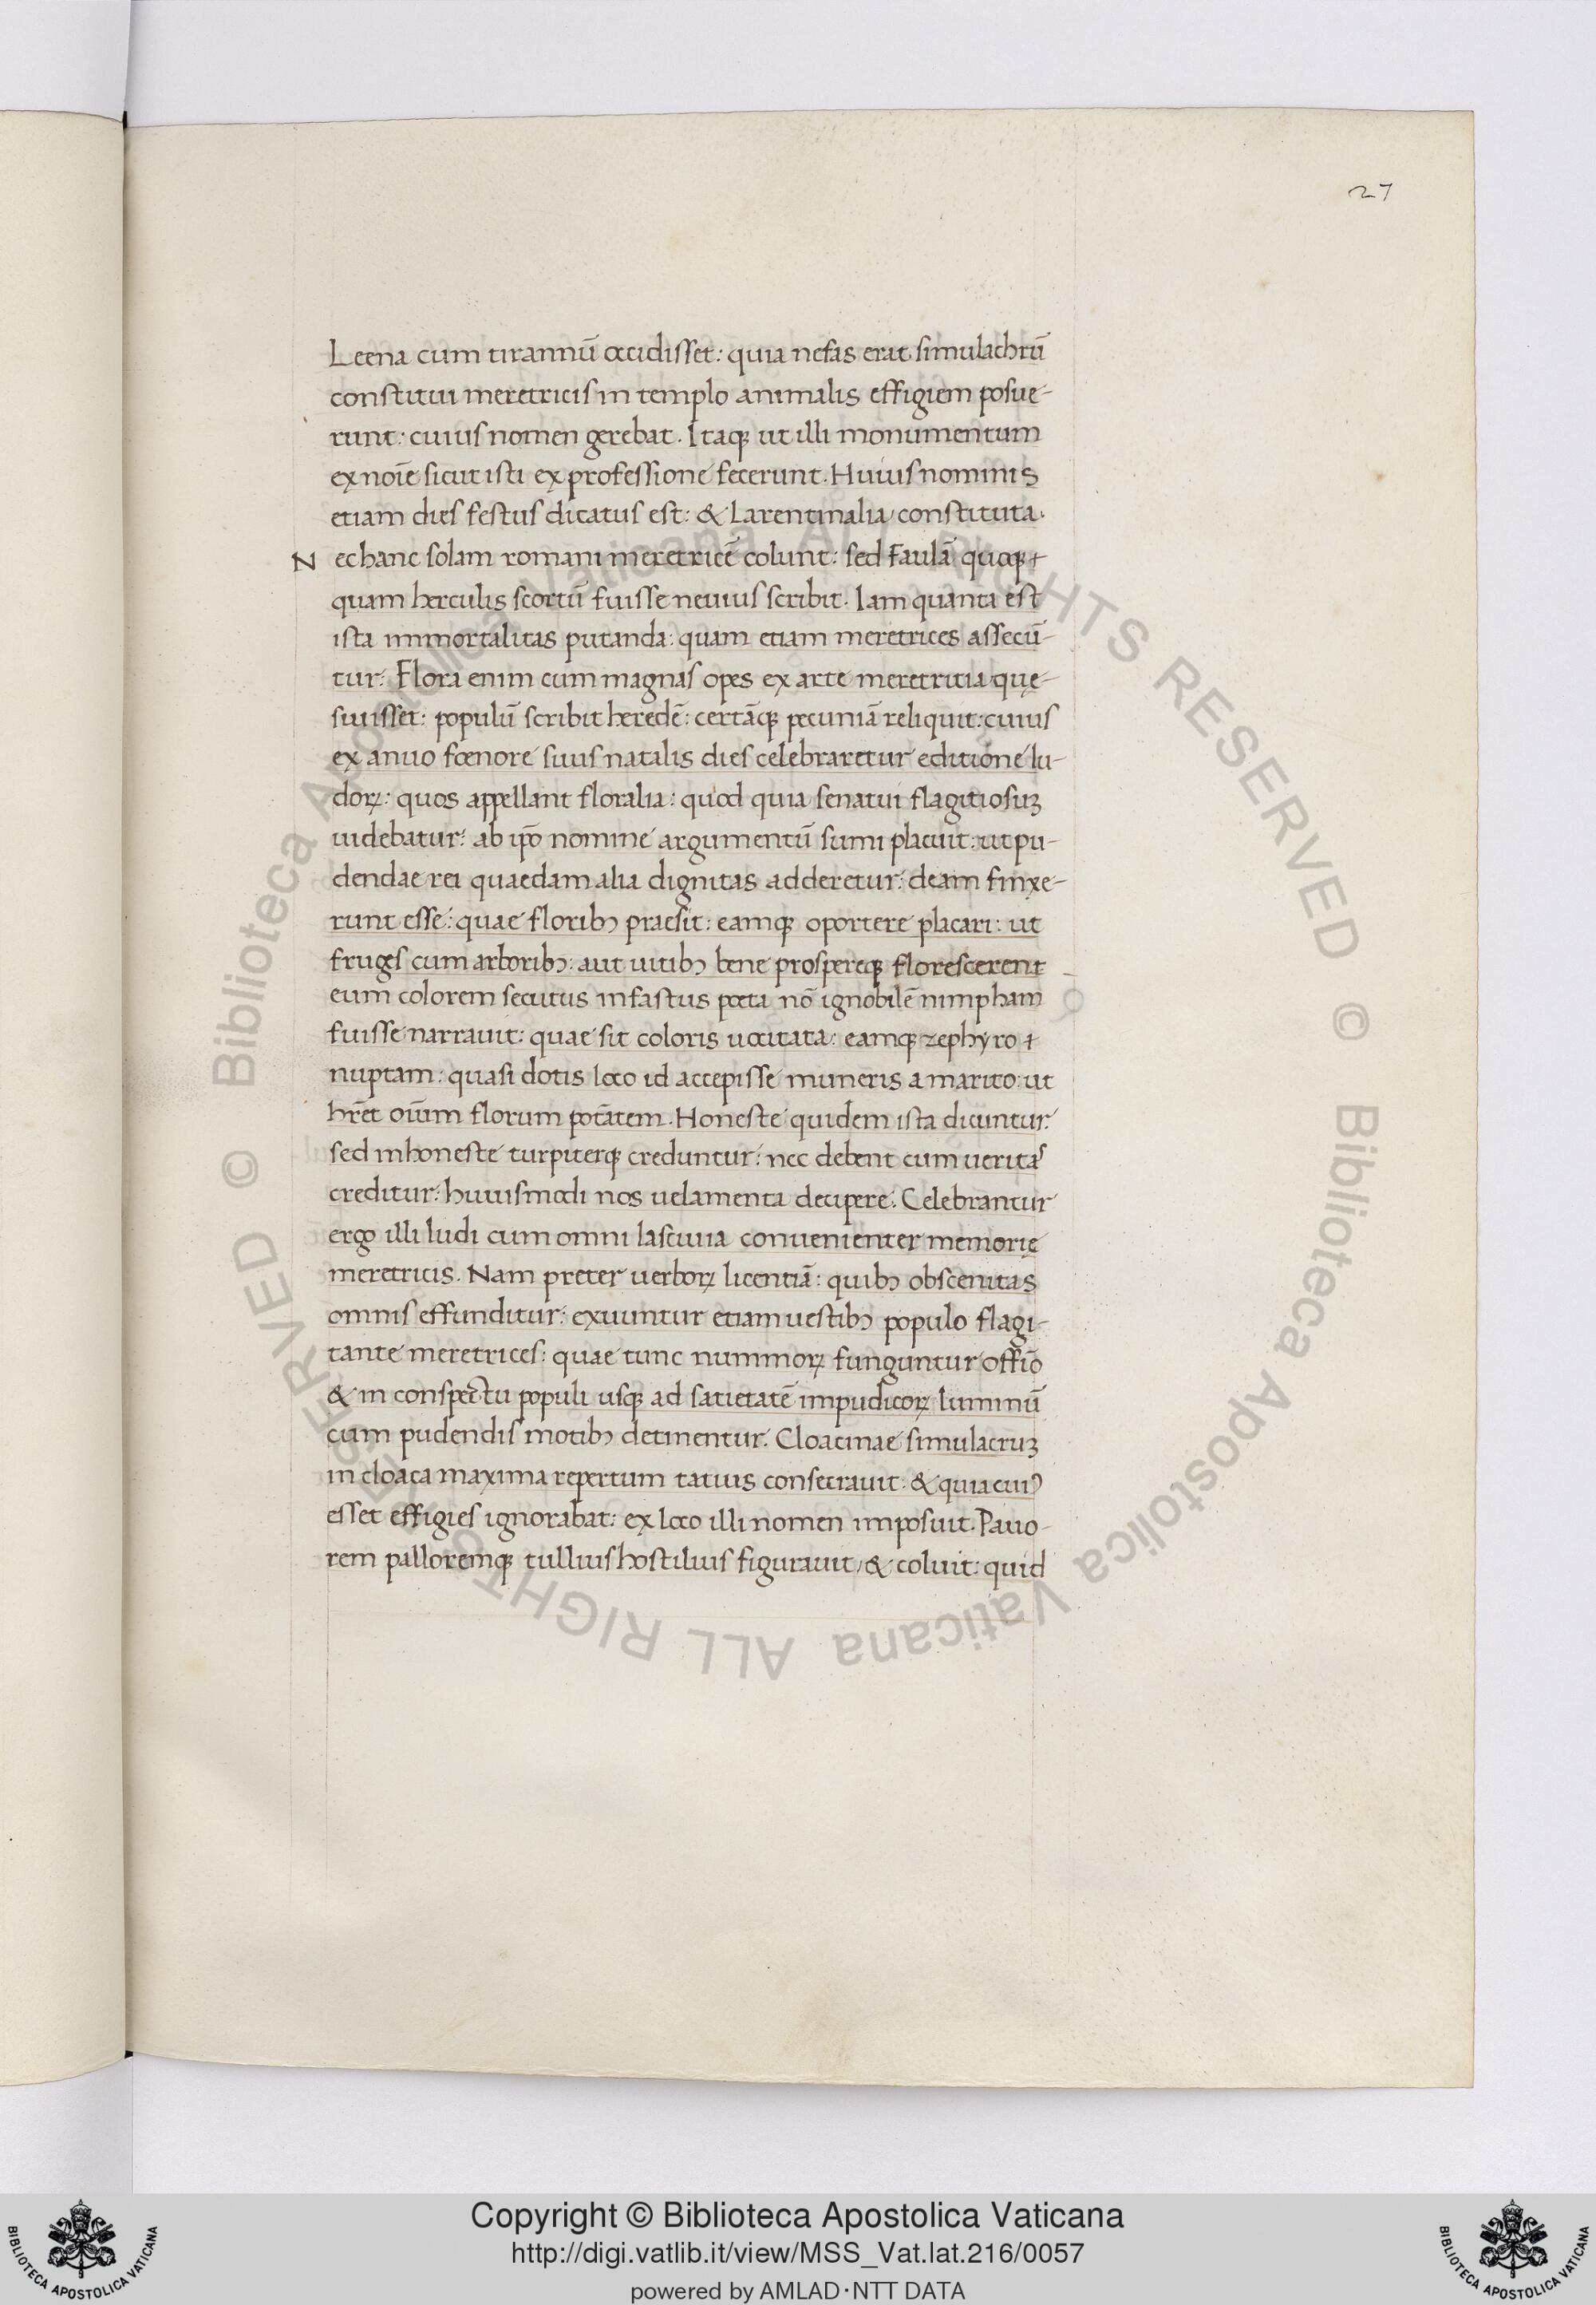 27
Leena cum tirannū occidisset: quia nefas erat simulachrū
constitui meretricis in templo animalis effigiem posue-
runt: cuius nomen gerebat. Itaqꝫ ut illi monumentum
ex noīe sicut isti ex professione fecerunt. Huius nominis
etiam dies festus dicatus est: & Larentinalia constituta.
Nec hanc solam romani meretricē colunt: sed Faulā quoqꝫ
quam herculis scortū fuisse neuius scribit. Iam quanta est
ista immortalitas putanda: quam etiam meretrices assecū-
tur: Flora enim cum magnas opes ex arte meretritia quę-
siuisset: populū scribit heredē: certāqꝫ pecuniā reliquit: cuius
ex anuo fœnore suus natalis dies celebraretur editione lu-
doꝝ: quos appellant floralia: quod quia senatui flagitiosuꝫ
uidebatur: ab ip̄o nomine argumentū sumi placuit: ut pu-
dendae rei quaedam alia dignitas adderetur: deam finxe-
runt esse: quae floribꝰ praesit: eamqꝫ oportere placari: ut
fruges cum arboribꝰ: aut uitibꝰ bene prospereqꝫ florescerent
eum colorem secutus in fastus poeta nō ignobilē nimpham
fuisse narrauit: quae sit coloris uocitata: eamqꝫ zephyro
nuptam: quasi dotis loco id accepisse muneris a marito: ut
hr̄et oīum florum potātem. Honeste quidem ista dicuntur:
sed inhoneste turpiterqꝫ creduntur: nec debent cum ueritaˢ
creditur: huiusmodi nos uelamenta decipere. Celebrantur
ergo illi ludi cum omni lasciuia conuenienter memorię
meretricis. Nam preter uerboꝝ licentiā: quibꝰ obscenitas
omnis effunditur: exuuntur etiam uestibꝰ populo flagi-
tante meretrices: quae tunc nummoꝝ funguntur offīo
& in conspectu populi usqꝫ ad satietatē impudicoꝝ luminū
cum pudendis motibꝰ detinentur. Cloacinae simulacruꝫ
in cloaca maxima repertum tatius consecrauit. & quia cuiꝰ
esset effigies ignorabat: ex loco illi nomen imposuit. Pauo-
rem palloremqꝫ tullius hostilius figurauit, & coluit: quid
© Biblioteca Apostolica Vaticana ALL RIGHTS RESERVED © Biblioteca Apostolica Vaticana ALL RIGHTS RESERVED
Copyright © Biblioteca Apostolica Vaticana
http://digi.vatlib.it/view/MSS_Vat.lat.216/0057
powered by AMLAD·NTT DATA
BIBLIOTECA APOSTOLICA VATICANA
BIBLIOTECA APOSTOLICA VATICANA